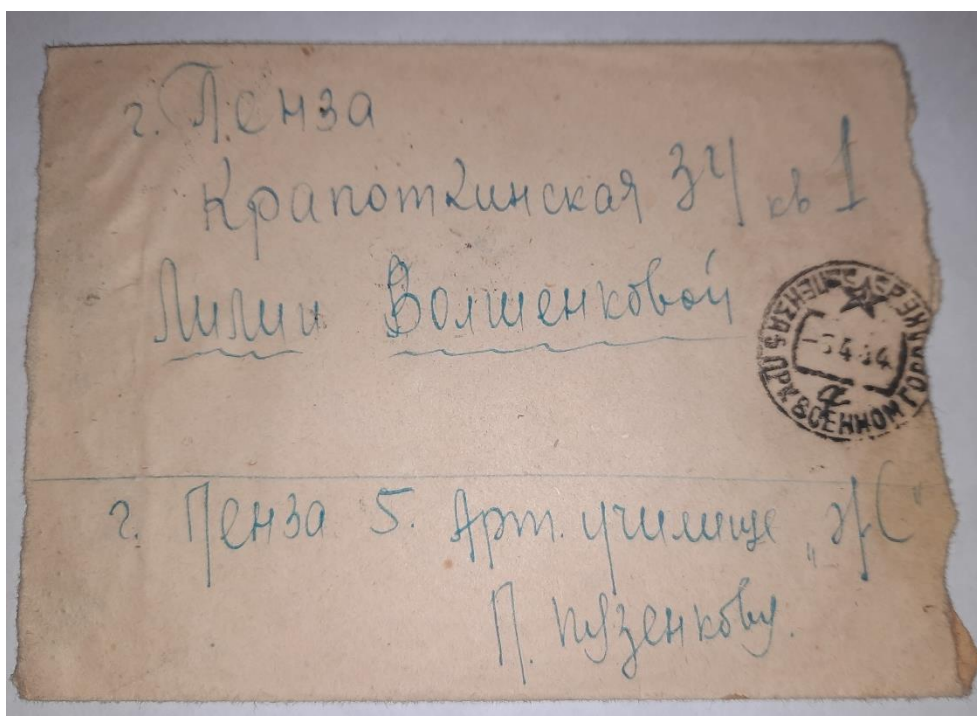 г. Пенза
Крапоткинская 34 кв 1
Лилии Волшенковой
ПЕНЗА 5 ПРИ ВОЕННОМ ГОРОДКЕ
4.44
г. Пенза 5. Арт. училище
П. Пузенкову.